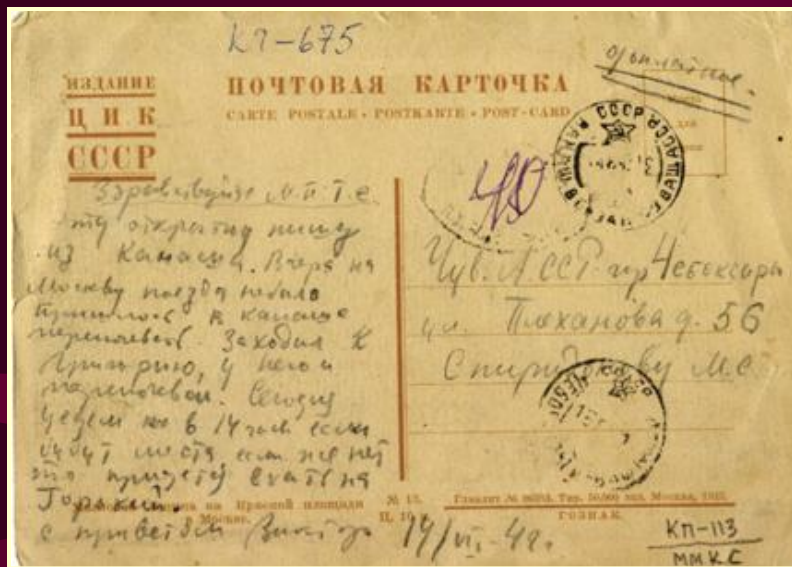 КП-675
доплатное.
ИЗДАНИЕ
ЦИК
СССР
ПОЧТОВАЯ КАРТОЧКА
CARTE POSTALE • POSTKARTE • POST-CARD
40
Здравствуйте М.П.Т.С.
эту открытку пишу
из Канаша. Вчера на
Москву поезда небыло
пришлось в Канаше
переночевать. Заходил к
Григорию, у него и
переночевал. Сегодня
уедем но в 14 час если
будут места если же нет
то придется ехать на
Горький.
с приветом Виктор 14/VI-41г.
Чув. АССР гор Чебоксары
ул. Плеханова д. 56
Спиридонову М.С.
на Красной площади
Москве.
№ 15.
Ц. 10
Москва
ГОЗНАК.
КП-113
ММКС